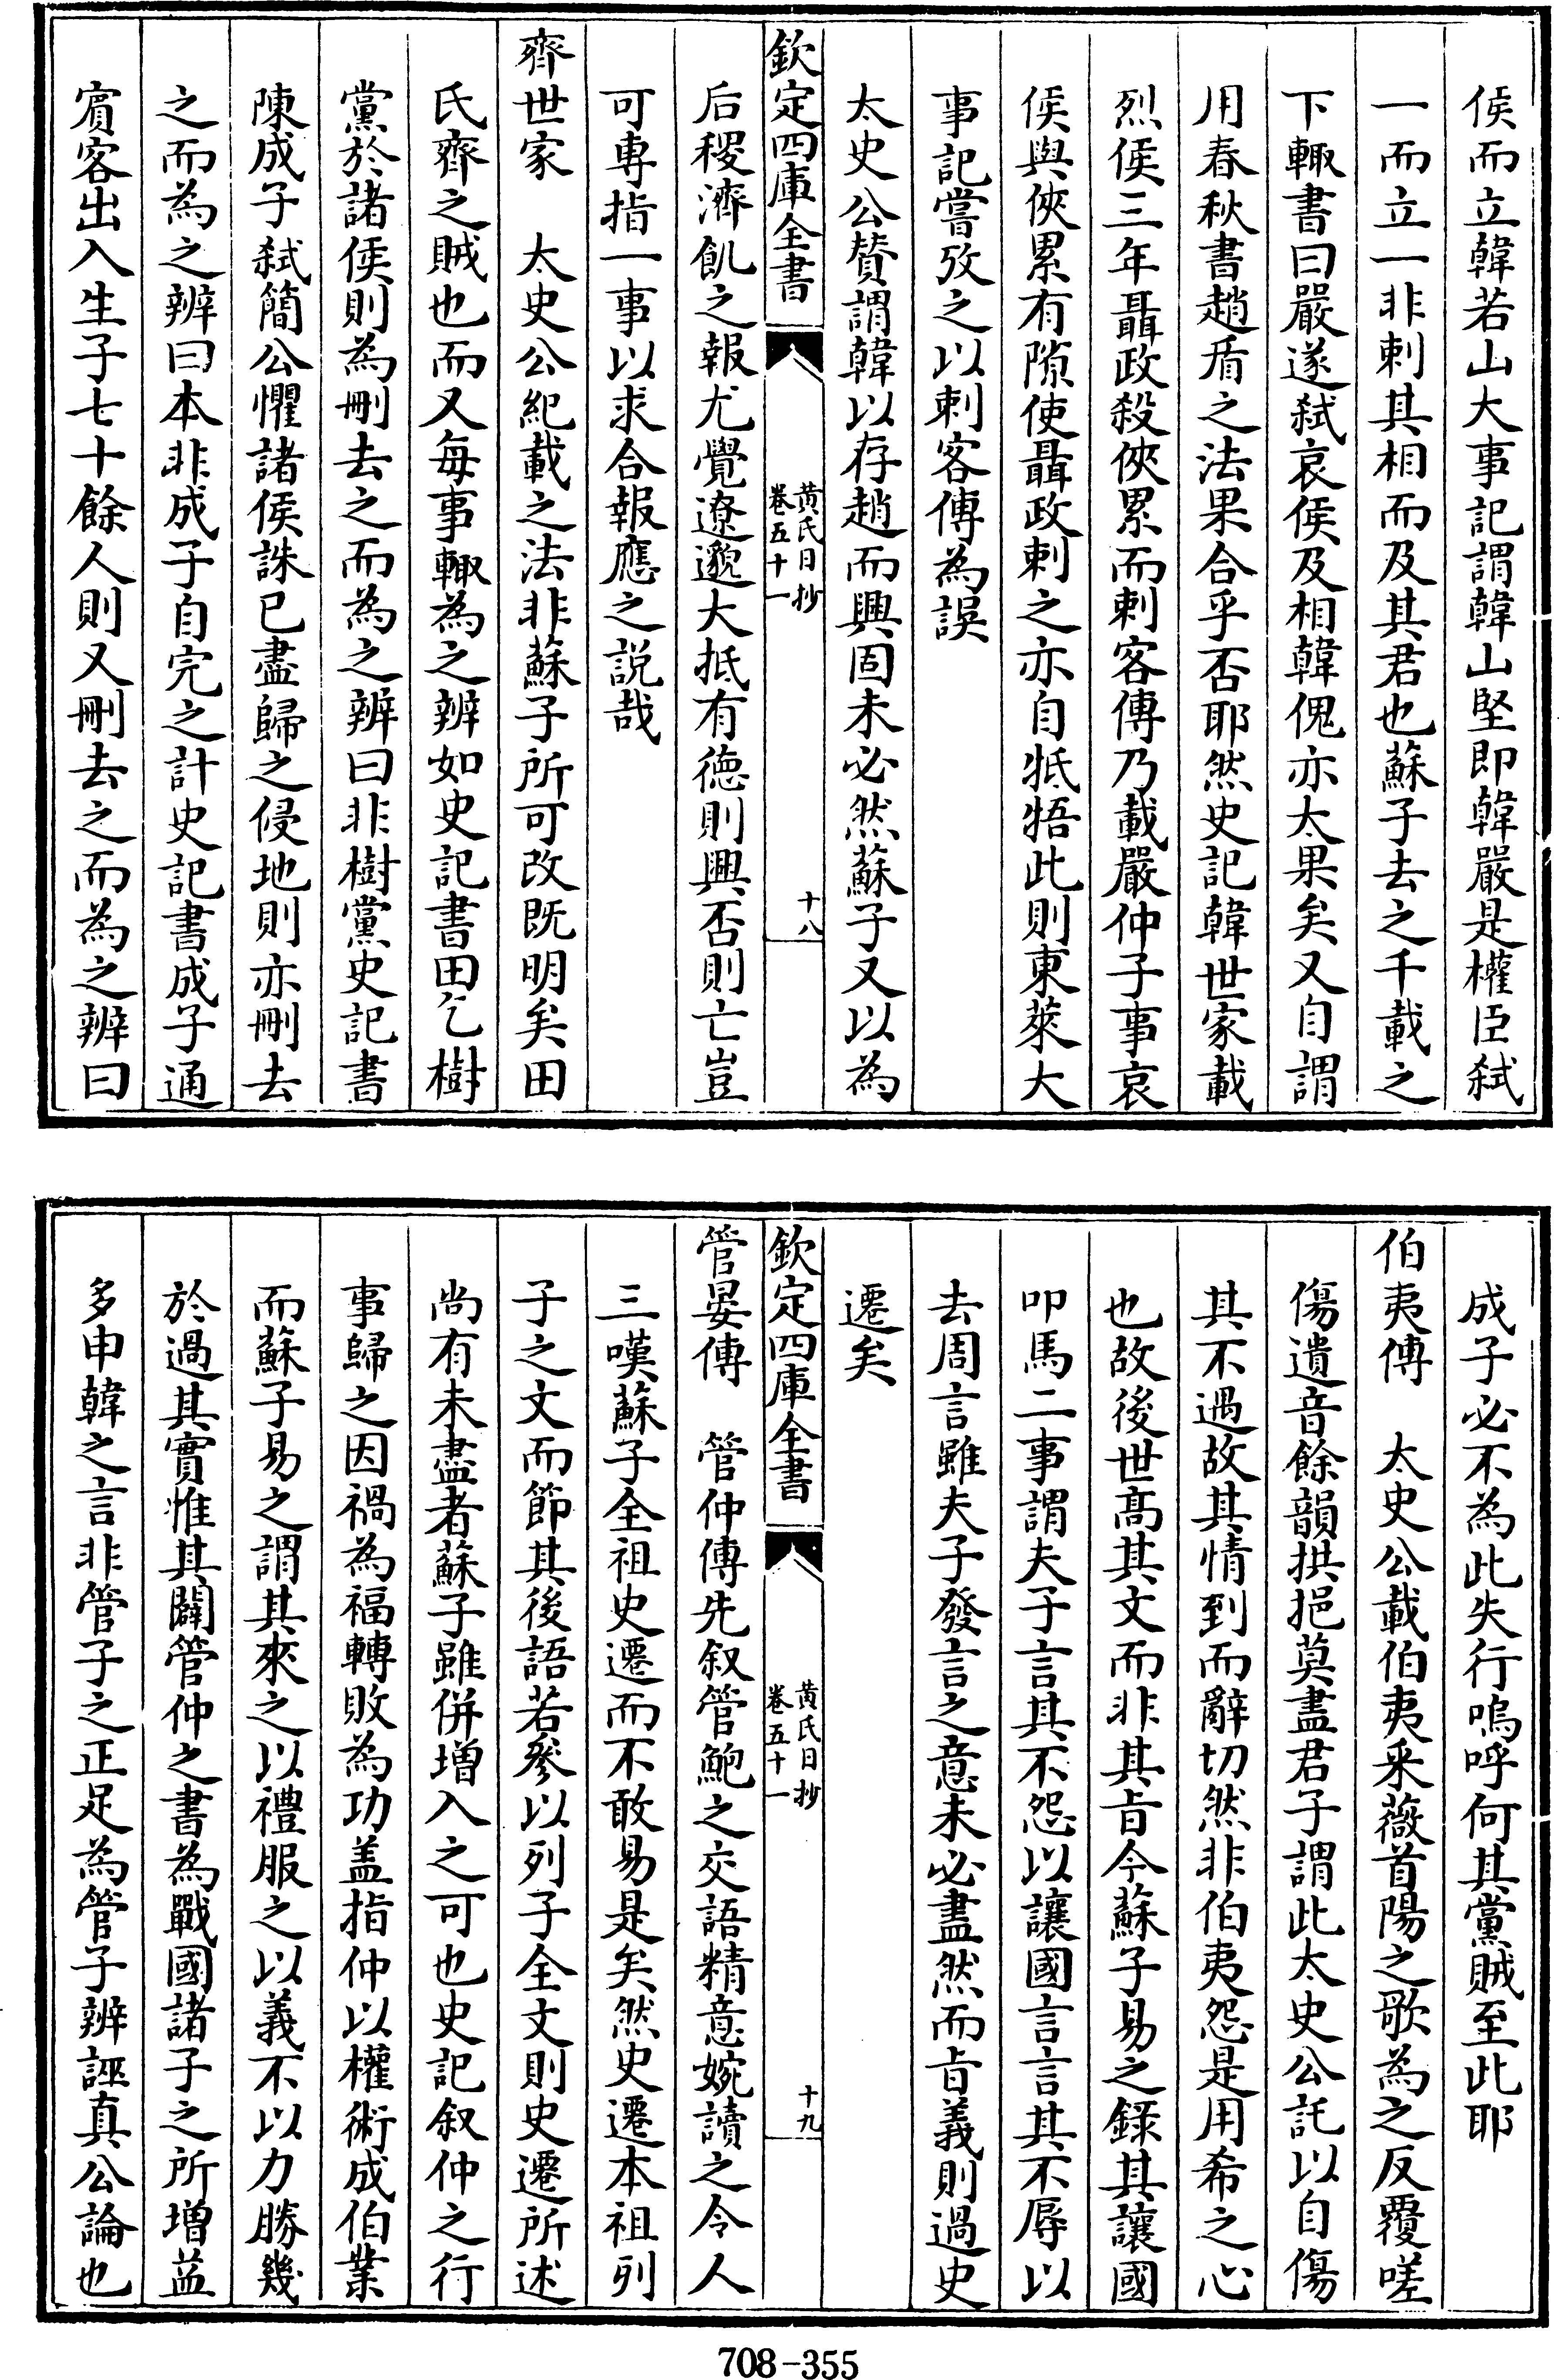 侯而立韓若山大事記謂韓山堅即韓嚴是權臣弑
一而立一非刺其相而及其君也蘇子去之千載之
下輙書曰嚴遂弑哀侯及相韓傀亦太果矣又自謂
用春秋書趙盾之法果合乎否耶然史記韓世家載
烈侯三年聶政殺俠累而刺客傳乃載嚴仲子事哀
侯與俠累有隙使聶政刺之亦自牴牾此則東萊大
事記嘗攷之以刺客傳為誤
太史公贊謂韓以存趙而興固未必然蘇子又以為
欽定四庫全書
黄氏日抄
卷五十一
十八
后稷濟飢之報尤覺遼邈大抵有德則興否則亡豈
可専指一事以求合報應之説哉
齊世家　太史公紀載之法非蘇子所可改既明矣田
氏齊之賊也而又每事輙為之辨如史記書田乞樹
黨於諸侯則為刪去之而為之辨曰非樹黨史記書
陳成子弑簡公懼諸侯誅已盡歸之侵地則亦刪去
之而為之辨曰本非成子自完之計史記書成子通
賔客出入生子七十餘人則又刪去之而為之辨曰
成子必不為此失行嗚呼何其黨賊至此耶
伯夷傳　太史公載伯夷采薇首陽之歌為之反覆嗟
傷遺音餘韻拱挹莫盡君子謂此太史公託以自傷
其不遇故其情到而辭切然非伯夷怨是用希之心
也故後世髙其文而非其㫖今蘇子易之錄其讓國
叩馬二事謂夫子言其不怨以讓國言言其不辱以
去周言雖夫子發言之意未必盡然而㫖義則過史
遷矣
欽定四庫全書
黄氏日抄
卷五十一
十九
管晏傳　管仲傳先叙管鮑之交語精意婉讀之令人
三嘆蘇子全祖史遷而不敢易是矣然史遷本祖列
子之文而節其後語若叅以列子全文則史遷所述
尚有未盡者蘇子雖併增入之可也史記叙仲之行
事歸之因禍為福轉敗為功盖指仲以權術成伯業
而蘇子易之謂其來之以禮服之以義不以力勝幾
於過其實惟其闢管仲之書為戰國諸子之所增益
多申韓之言非管子之正足為管子辨誣真公論也
708-355